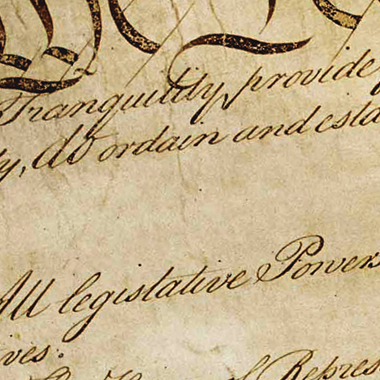 Tranquility, provide
ty, do ordain and esta
All legislative Powers
ives.
Repres